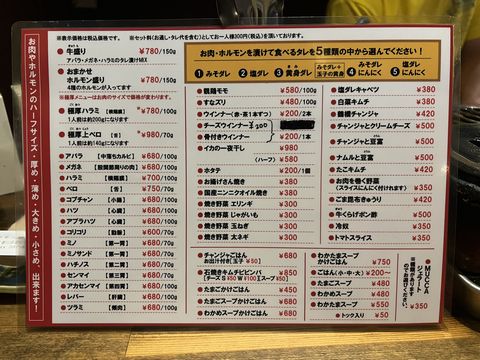 ※表示価格は税込価格です。 ※セット料(お通し・タレ代を含む)としてお一人様300円(税込)を頂いております。
お肉やホルモンのハーフサイズ・厚め・薄め・大きめ・小さめ、出来ます！
牛盛り ¥780/150g
アバラ・メガネ・ハラミのタレ漬けMIX
おまかせホルモン盛り ¥780/150g
4種のホルモンが入ってます
※極厚メニューはお肉のサイズで価格が変わります。
極厚ハラミ【横隔膜】 ※¥780/100g
1人前は約200gになります
極厚上ベロ【舌】 ※¥980/70g
1人前は約140gになります
アバラ【中落ちカルビ】 ¥680/100g
メガネ【股関節周りの肉】 ¥680/100g
ハラミ【横隔膜】 ¥780/100g
ベロ【舌】 ¥750/70g
コプチャン【小腸】 ¥680/100g
ハツ【心臓】 ¥680/100g
アブラハツ【心臓】 ¥680/100g
コリコリ【動脈】 ¥600/70g
ミノ【第一胃】 ¥680/100g
ミノサンド【第一胃】 ¥680/100g
ハチノス【第二胃】 ¥680/100g
センマイ【第三胃】 ¥680/100g
アカセンマイ【第四胃】 ¥680/100g
レバー【肝臓】 ¥680/100g
ツラミ【頬肉】 ¥680/100g
お肉・ホルモンを漬けて食べるタレを5種類の中から選んでください！
1 みそダレ 2 塩ダレ 3 黄身ダレ みそダレ+玉子の黄身 4 みそダレにんにく 5 塩ダレにんにく
鶏モモ ¥580/100g
すなズリ ¥480/100g
ウインナー(赤・茶1本ずつ) ¥200/2本
チーズウインナー ¥300
骨付きウインナー ¥200/1本
イカの一夜干し ¥980
(ハーフ) ¥580
ホタテ ¥200/1個
お揚げさん焼き ¥380
国産ニンニクオイル焼き ¥380
焼き野菜 エリンギ ¥300
焼き野菜 じゃがいも ¥300
焼き野菜 玉ねぎ ¥300
焼き野菜 太ネギ ¥300
塩ダレキャベツ ¥380
白菜キムチ ¥380
鶴橋チャンジャ ¥480
チャンジャとクリームチーズ ¥500
チャンジャと豆富 ¥500
ナムルと豆富 ¥500
たこキムチ ¥420
お肉を巻く野菜 ¥350
(スライスにんにく付けれます)
ごま昆布きゅうり ¥420
牛くらげポン酢 ¥500
冷奴 ¥350
トマトスライス ¥350
チャンジャごはん ¥680
お出汁付き【玉子 ¥50】
石焼きキムチビビンバ ¥850
【チーズS ¥50 M ¥100】【玉子 ¥50】
たまごごはん ¥450
たまごスープかけごはん ¥680
わかめスープかけごはん ¥680
わかたまスープかけごはん ¥750
ごはん(小・中・大) ¥200〜
たまごスープ ¥480
わかめスープ ¥480
わかたまスープ ¥550
トック入り ¥50
MUCCAジェラート
※種類がありますので店員までお声掛け下さい
¥350